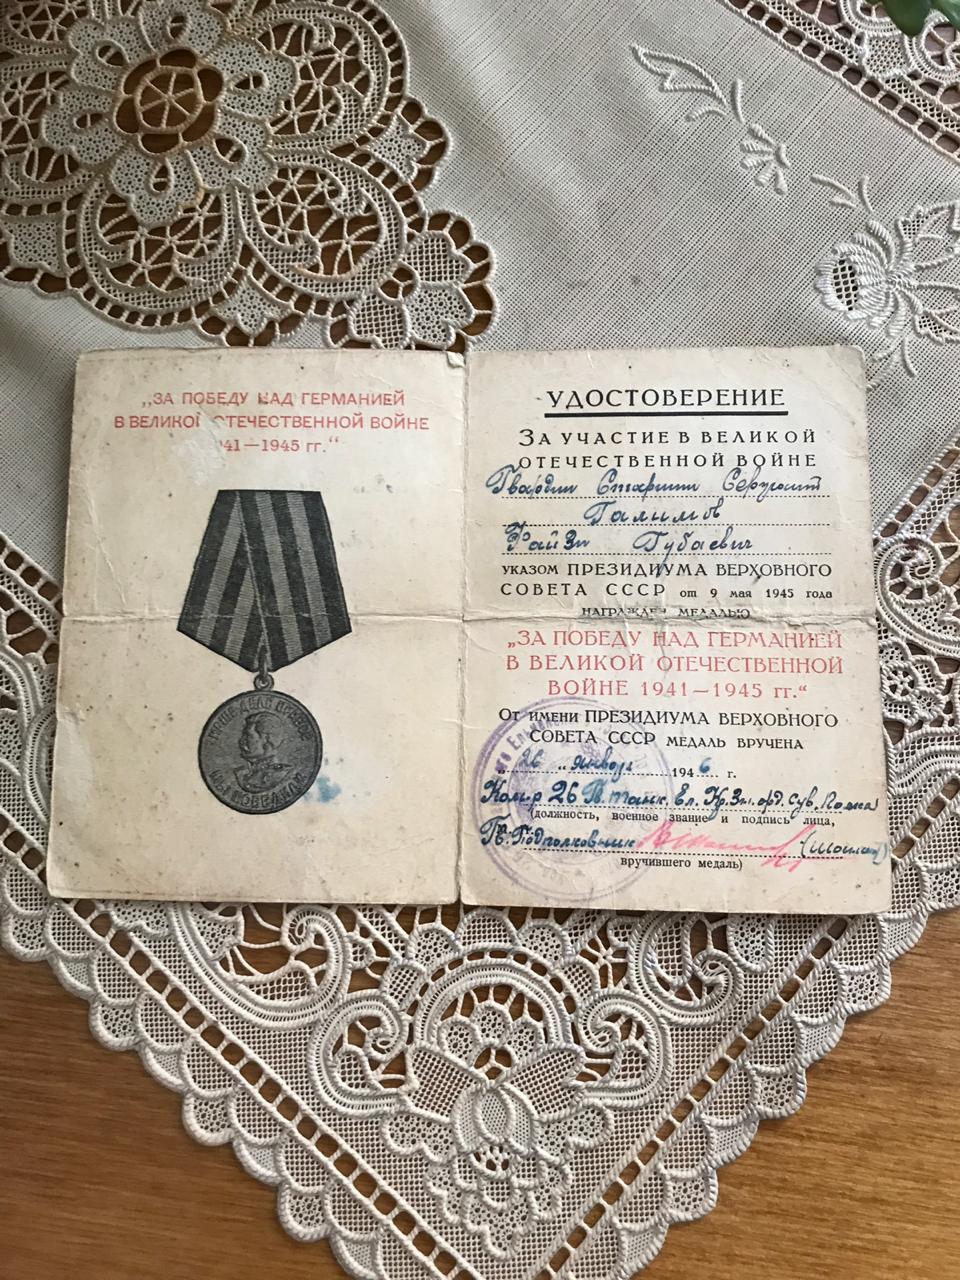 „ЗА ПОБЕДУ НАД ГЕРМАНИЕЙ
В ВЕЛИКОЙ ОТЕЧЕСТВЕННОЙ ВОЙНЕ
41—1945 гг.“
НАШЕ ДЕЛО ПРАВОЕ
МЫ ПОБЕДИЛИ
УДОСТОВЕРЕНИЕ
ЗА УЧАСТИЕ В ВЕЛИКОЙ
ОТЕЧЕСТВЕННОЙ ВОЙНЕ
Гвардии Старшии Сержант
Галимов
Файзи Губаевич
УКАЗОМ ПРЕЗИДИУМА ВЕРХОВНОГО
СОВЕТА СССР от 9 мая 1945 года
НАГРАЖДЕН МЕДАЛЬЮ
„ЗА ПОБЕДУ НАД ГЕРМАНИЕЙ
В ВЕЛИКОЙ ОТЕЧЕСТВЕННОЙ
ВОЙНЕ 1941—1945 гг.“
От имени ПРЕЗИДИУМА ВЕРХОВНОГО
СОВЕТА СССР МЕДАЛЬ ВРУЧЕНА
„26„ январь 1946 г.
Комир 26 Гв. танк. Ел. Кр. Зн. орд. Сув. Полка
(должность, военное звание и подпись лица,
Гв. Подполковник
вручившего медаль)